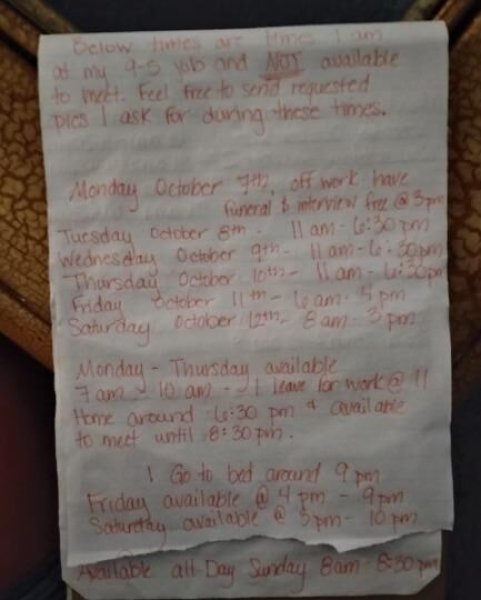 Below times are times I am
at my 9-5 job and NOT available
to meet. Feel free to send requested
pics I ask for during these times.
Monday October 7th, off work have
funeral & interview free @ 3pm
Tuesday October 8th - 11am-6:30pm
Wednesday October 9th - 11am-6:30pm
Thursday October 10th - 11am-6:30pm
Friday October 11th - 6am-4pm
Saturday October 12th - 8am-3pm
Monday - Thursday available
7am - 10am - I leave for work @ 11
Home around 6:30 pm & available
to meet until 8:30pm.
I Go to bed around 9pm
Friday available @ 4pm - 9pm
Saturday available @ 3pm - 10pm
Available all Day Sunday 8am-8:30pm